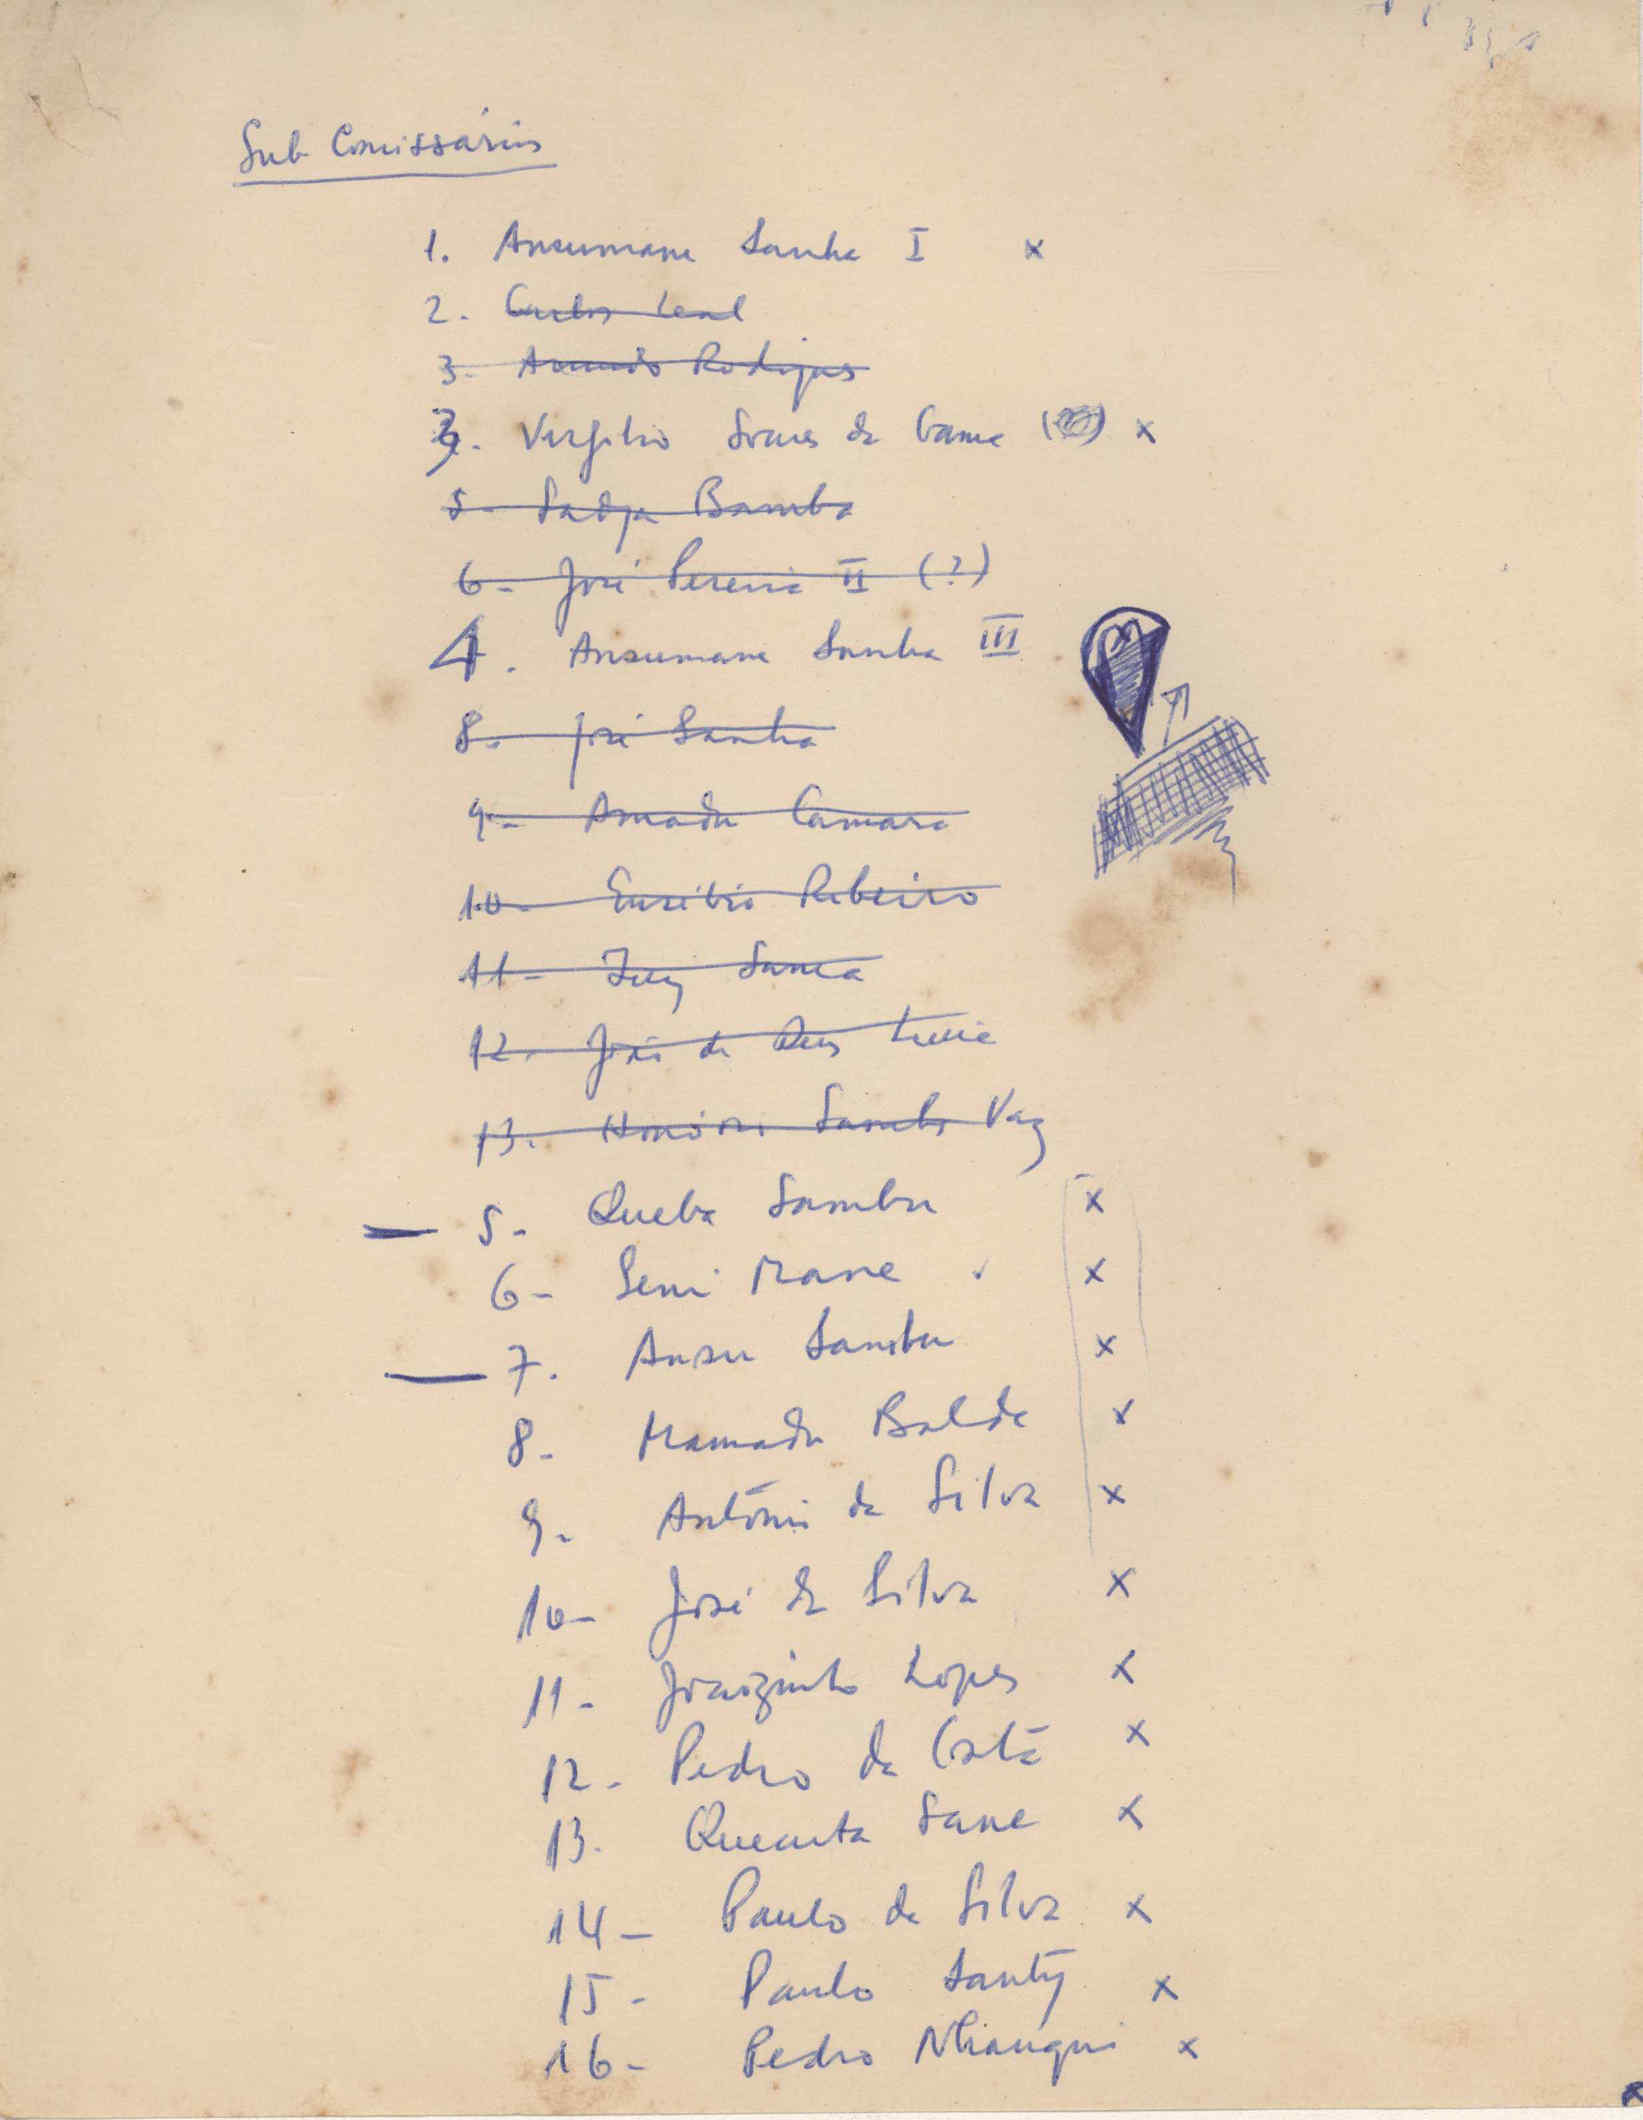 Sub Comissários
1. Ansumane Sanha I x
2. Carlos Leal
3. Armando Rodrigues
3. Virgilio Soares da Gama x
5- Sadja Bamba
6- José Pereira II (?)
4. Ansumane Sanha III
8. José Sanha
9- Amadu Camara
10- Eusébio Ribeiro
11- Sanca
12. João de Deus
13. Honório Sambs Vaz
5- Queba Sambu x
6- Seni Mane x
7. Ansu Sambu x
8- Mamadu Balde x
9. António da Silva x
10- José da Silva x
11- Joaozinho Lopes x
12- Pedro da Costa x
13. Quecuta Sane x
14- Paulo da Silva x
15- Paulo Santy x
16- Pedro Nhanqui x